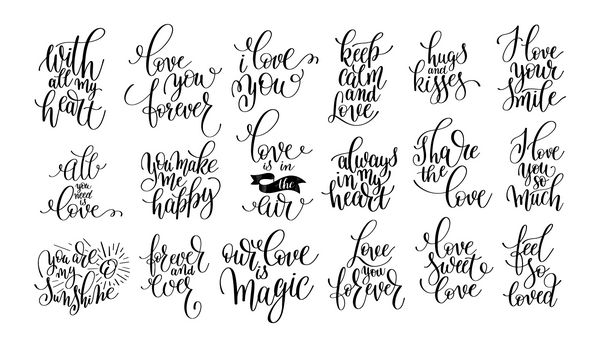 with
all my
heart
love
you
forever
i love
you
keep
calm
and
Love
hugs
and
kisses
I love
your
Smile
all
you
need is
love
you make
me
happy
love
is in
the
air
always
in my
heart
Share
the
love
I love
you so
much
you are
my
Sunshine
forever
and
ever
our love
is
Magic
Love
you
forever
love
sweet
love
feel
so
loved